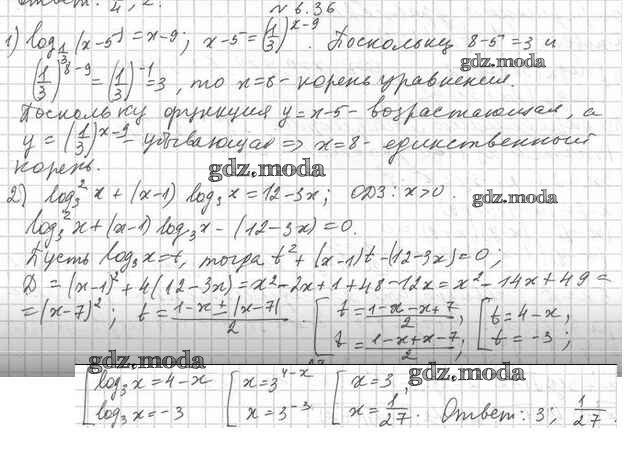 Ответ: 4, 2.
№ 6.36
1) log_{1/3} (x-5) = x-9; x-5 = (1/3)^{x-9}. Поскольку 8-5=3 и
gdz.moda
(1/3)^{8-9} = (1/3)^{-1} = 3, то x=8 - корень уравнения.
Поскольку функция y=x-5 - возрастающая, а
y = (1/3)^{x-9} - убывающая ⇒ x=8 - единственный
корень.
gdz.moda
2) log_3^2 x + (x-1) log_3 x = 12-3x; ОДЗ: x>0.
gdz.moda
log_3^2 x + (x-1) log_3 x - (12-3x) = 0.
Пусть log_3 x = t, тогда t^2 + (x-1)t - (12-3x) = 0;
D = (x-1)^2 + 4(12-3x) = x^2-2x+1+48-12x = x^2-14x+49 =
= (x-7)^2; t = (1-x ± |x-7|)/2. [ t = (1-x-x+7)/2, t = (1-x+x-7)/2, [ t = 4-x, t = -3;
gdz.moda
gdz.moda
[ log_3 x = 4-x log_3 x = -3 [ x = 3^{4-x} x = 3^{-3} [ x = 3, x = 1/27. Ответ: 3; 1/27.